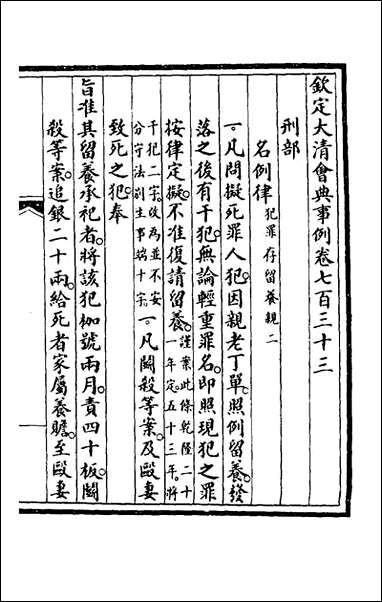 欽定大清會典事例卷七百三十三
刑部
名例律犯罪存留養親二
一凡問擬死罪人犯因親老丁單照例留養發
落之後有干犯無論輕重罪名即照現犯之罪
按律定擬不准復請留養謹案此條乾隆二十一年定五十三年將
干犯二字改為並不安分守法別生事端十字一凡鬬殺等案及毆妻
致死之犯奉
旨准其留養承祀者將該犯枷號兩月責四十板鬬
殺等案追銀二十兩給死者家屬養贍至毆妻